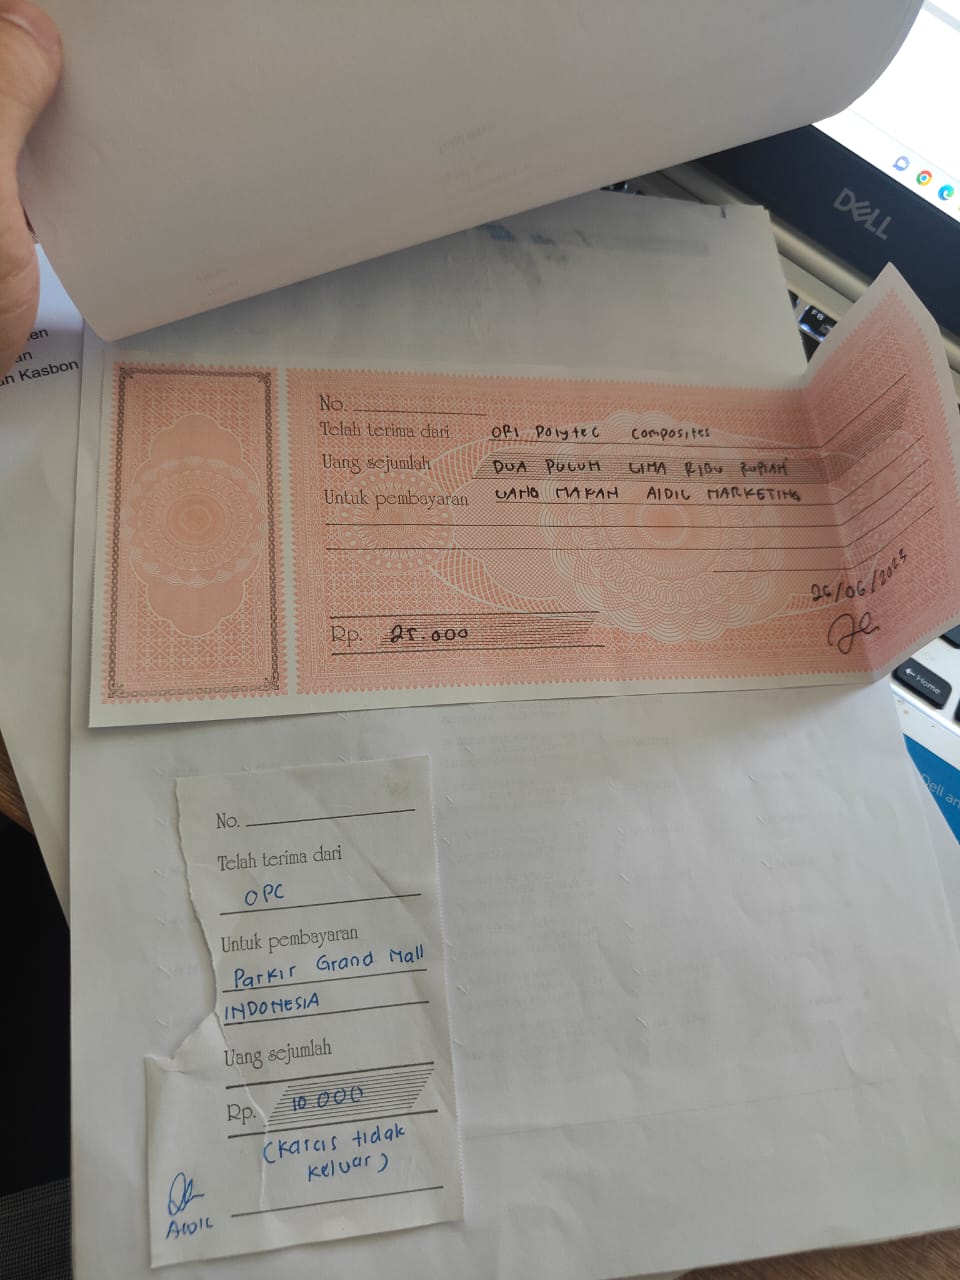 DELL
F8
en
an
an Kasbon
No.
Telah terima dari ORI Polytec Composites
Uang sejumlah DUA PULUH LIMA RIBU RUPIAH
Untuk pembayaran UANG MAKAN AIDIL MARKETING
26/06/2023
Rp. 25.000
Home
Dell an
No.
Telah terima dari
OPC
Untuk pembayaran
Parkir Grand Mall
INDONESIA
Uang sejumlah
Rp. 10.000
(Karcis tidak
keluar)
AIDIL